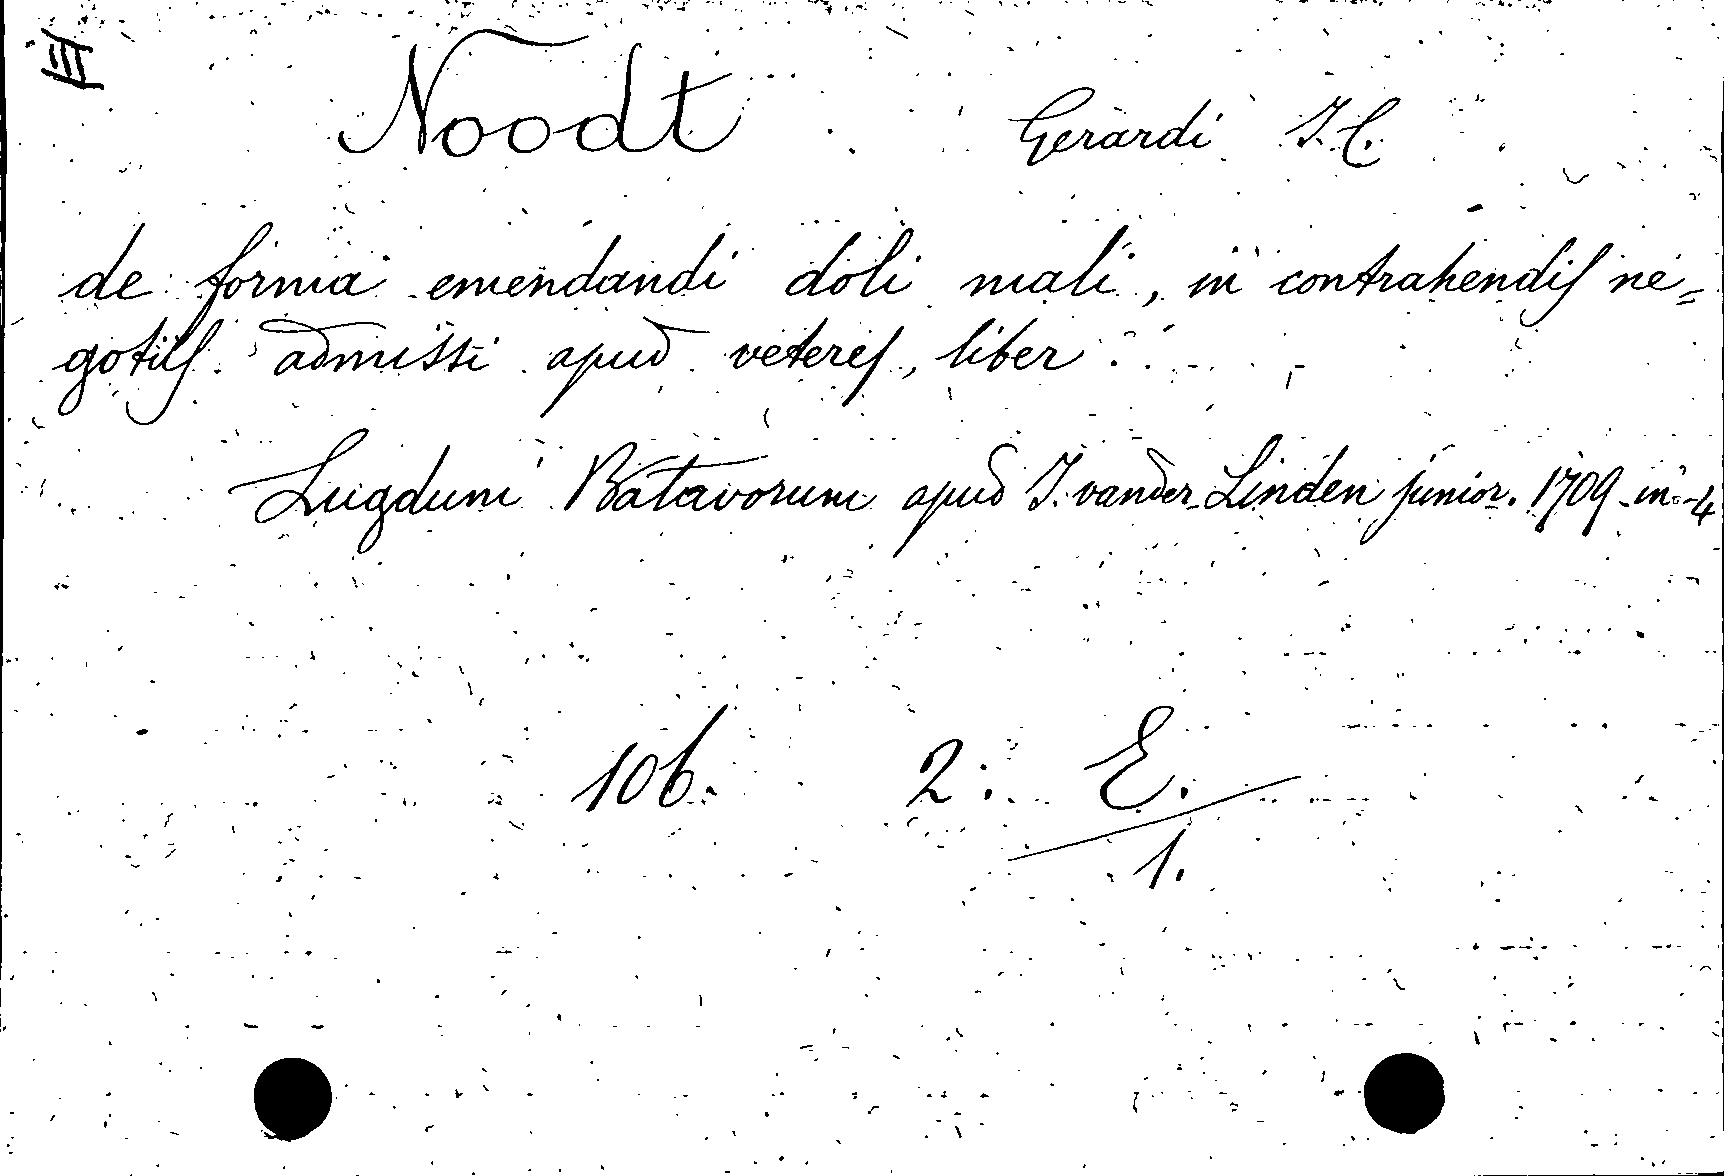 III
Noodt Gerardi J.C.
de forma emendandi doli mali, in contrahendis ne=
gotiis admissi apud veteres, liber.
Lugduni Batavorum apud J. vander Linden junior. 1709 in-4
106. 2. E.
1.